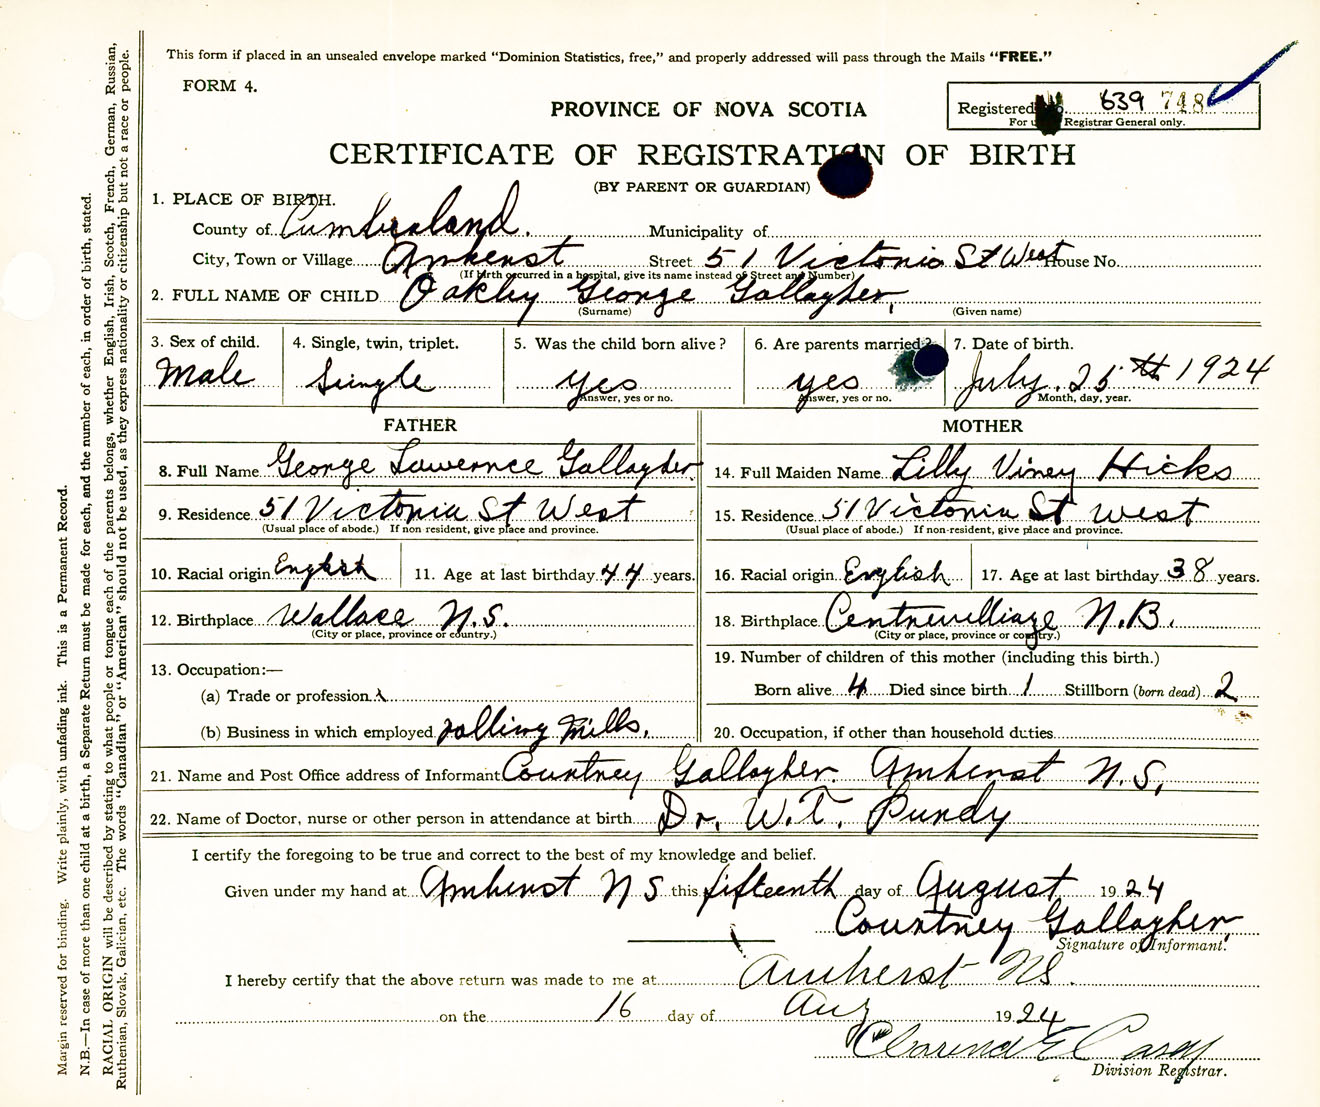 This form if placed in an unsealed envelope marked “Dominion Statistics, free,” and properly addressed will pass through the Mails “FREE.”
FORM 4.
PROVINCE OF NOVA SCOTIA
Registered No. 639 748
For use Registrar General only.
CERTIFICATE OF REGISTRATION OF BIRTH
(BY PARENT OR GUARDIAN)
1. PLACE OF BIRTH.
County of Cumberland. Municipality of
City, Town or Village Amherst Street 51 Victoria St West House No.
(If birth occurred in a hospital, give its name instead of Street and Number)
2. FULL NAME OF CHILD Oakley George Gallagher.
(Surname) (Given name)
3. Sex of child. 4. Single, twin, triplet. 5. Was the child born alive? 6. Are parents married? 7. Date of birth.
Male Single yes yes July. 25th 1924
Answer, yes or no. Answer, yes or no. Month, day, year.
FATHER MOTHER
8. Full Name George Lawernce Gallagher 14. Full Maiden Name Lilly Viney Hicks
9. Residence 51 Victoria St West 15. Residence 51 Victoria St west
(Usual place of abode.) If non-resident, give place and province. (Usual place of abode.) If non-resident, give place and province.
10. Racial origin English 11. Age at last birthday 44 years. 16. Racial origin English 17. Age at last birthday 38 years.
12. Birthplace Wallace N.S. 18. Birthplace Centrevilliage N.B.
(City or place, province or country.) (City or place, province or country.)
13. Occupation:— 19. Number of children of this mother (including this birth.)
(a) Trade or profession Born alive 4 Died since birth 1 Stillborn (born dead) 2
(b) Business in which employed rolling mills. 20. Occupation, if other than household duties
21. Name and Post Office address of Informant Courtney Gallagher Amherst N.S.
22. Name of Doctor, nurse or other person in attendance at birth Dr. W.T. Purdy
I certify the foregoing to be true and correct to the best of my knowledge and belief.
Given under my hand at Amherst N S this fifteenth day of August 1924
Courtney Gallagher.
Signature of Informant.
I hereby certify that the above return was made to me at Amherst NS.
on the 16 day of Aug 1924
Clarence E Casey
Division Registrar.
Margin reserved for binding. Write plainly, with unfading ink. This is a Permanent Record.
N.B.—In case of more than one child at a birth, a Separate Return must be made for each, and the number of each, in order of birth, stated.
RACIAL ORIGIN will be described by stating to what people or tongue each of the parents belongs, whether English, Irish, Scotch, French, German, Russian,
Ruthenian, Slovak, Galician, etc. The words “Canadian” or “American” should not be used, as they express nationality or citizenship but not a race or people.